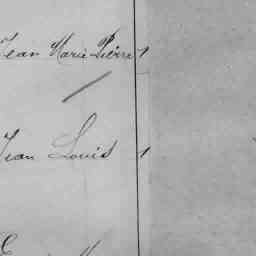 Jean Marie Pierre 1
Jean Louis 1